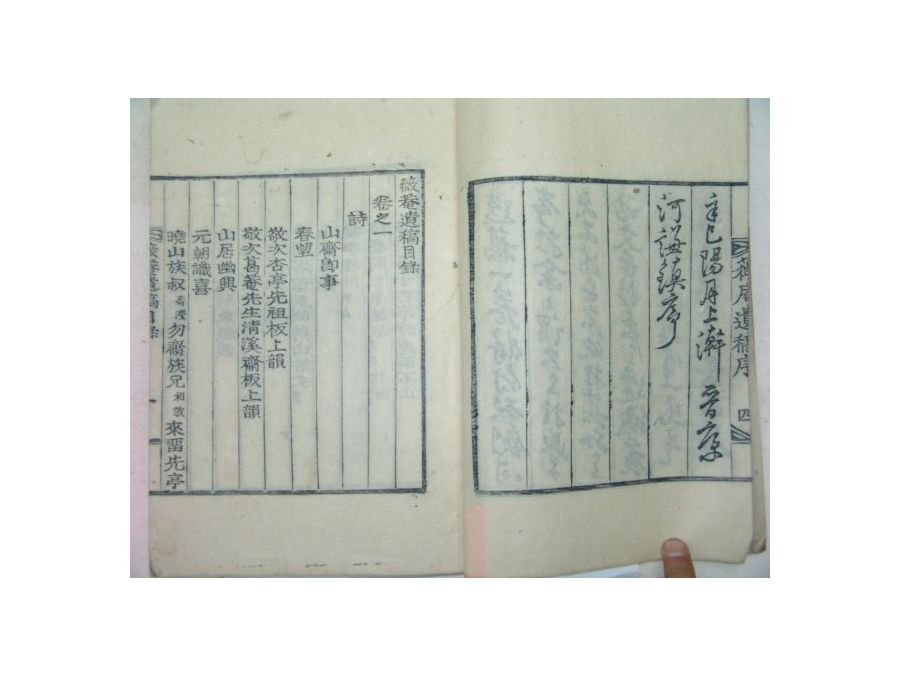 薇菴遺稿序
四
辛巳陽月上澣 晉康
河謙鎮序
薇菴遺稿目錄
卷之一
詩
山齋卽事
春望
敬次杏亭先祖板上韻
敬次葛菴先生淸溪齋板上韻
山居幽興
元朝識喜
曉山族叔壽瀅勿齋族兄相敦來留先亭
薇菴遺稿目錄